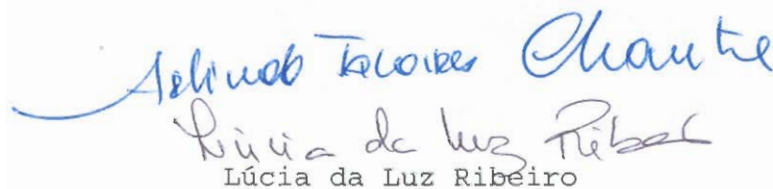 Arlindo Tavares Chantre
Lúcia da Luz Ribei
Lúcia da Luz Ribeiro